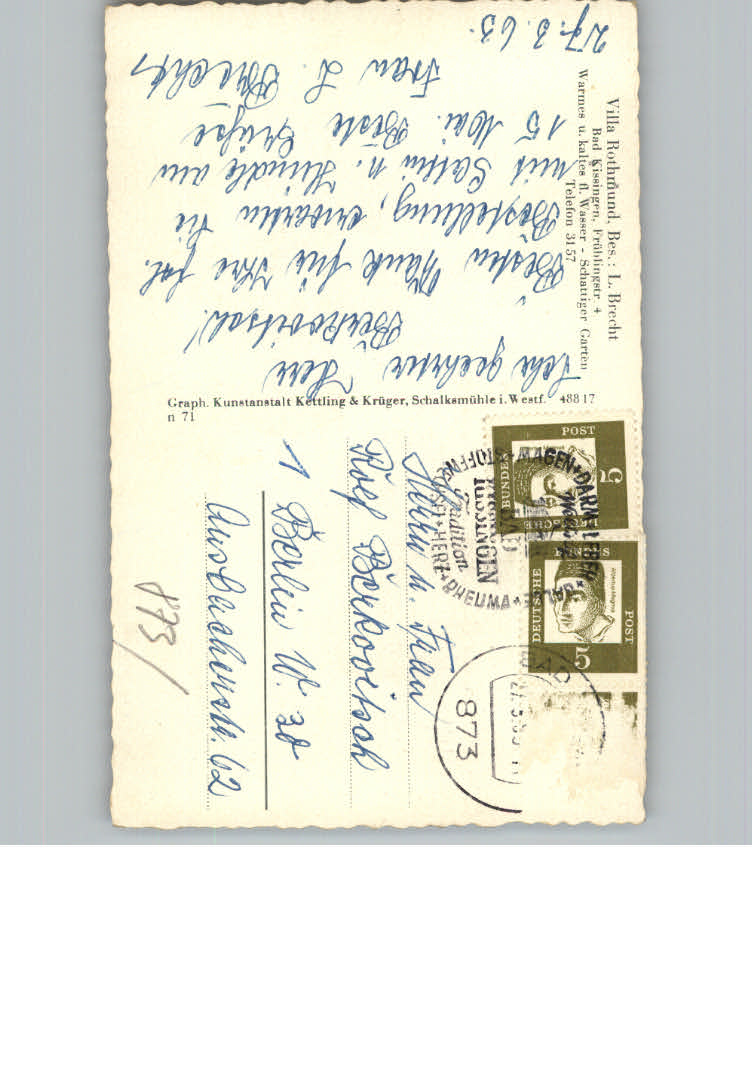 Villa Rothmund, Bes.: L. Brecht
Bad Kissingen, Frühlingstr. 4
Warmes u. kaltes fl. Wasser - Schattiger Garten
Telefon 3157
27.3.63.
Sehr geehrter Herr
Berkovitsch!
Besten Dank für Ihre frl.
Bestellung, erwarten Sie
mit Gattin u. Hündle am
15 Mai. Beste Grüße
Frau L. Brecht
Graph. Kunstanstalt Kettling & Krüger, Schalksmühle i. Westf. 48817
n 71
DEUTSCHE BUNDESPOST
5
DEUTSCHE BUNDESPOST
5
Albertus Magnus
873
BAD
BAD
KISSINGEN
Tradition
HERZ + RHEUMA +
MAGEN + DARM + LEBER
Herrn u. Frau
Rolf Berkovitsch
1 Berlin W. 30
Ansbacherstr. 62
873